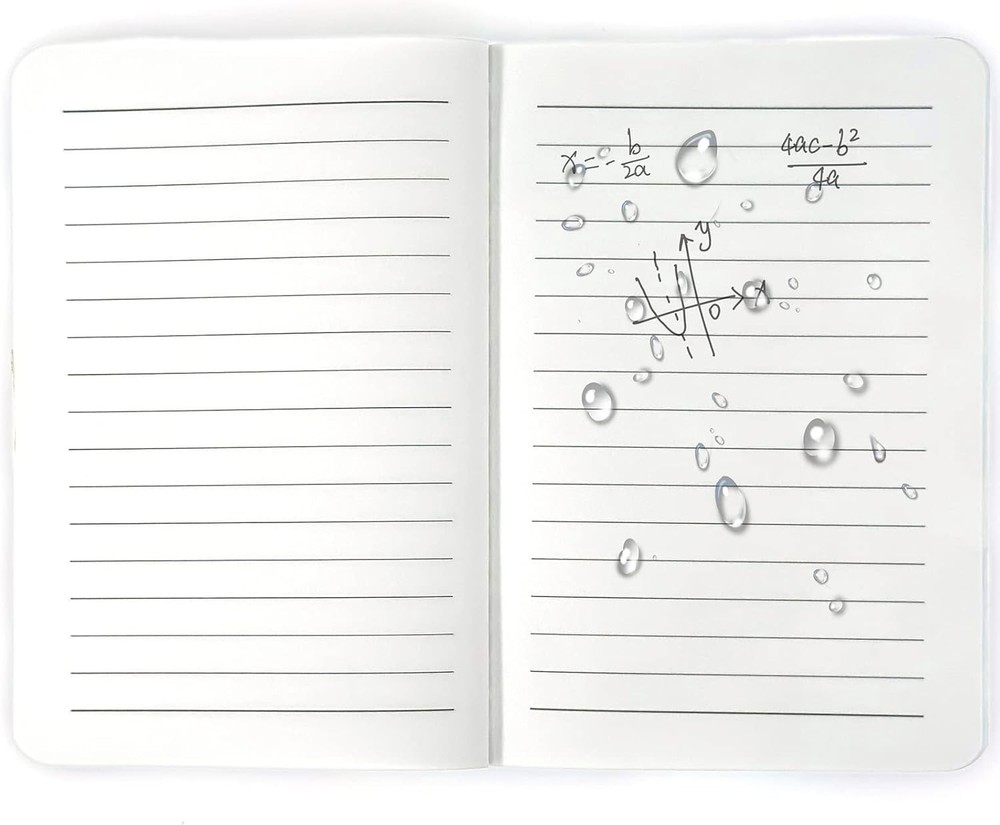 x = -\frac{b}{2a} \frac{4ac-b^2}{4a}
y
x
0